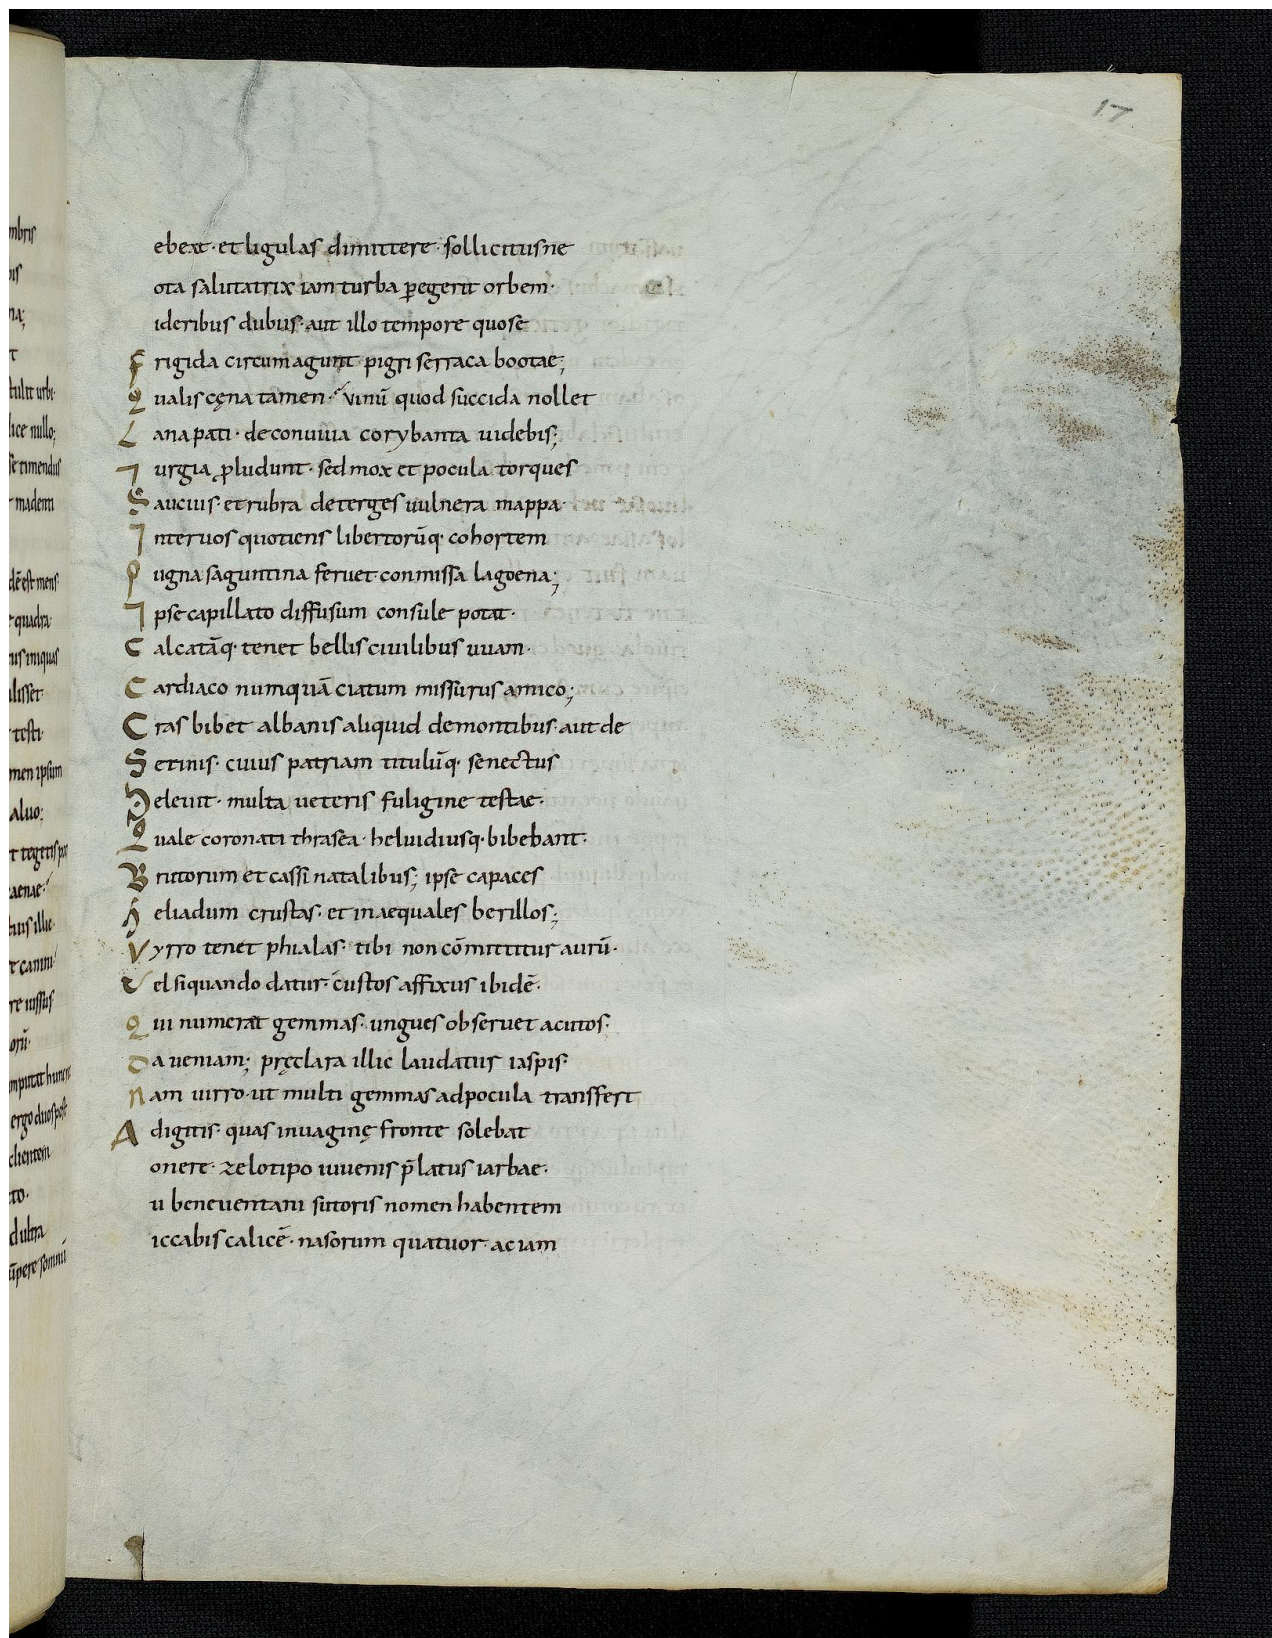 17
ebeat· et ligulas dimittere· sollicitus ne
ota salutatrix iam turba ꝑegerit orbem·
ideribus dubiis· aut illo tempore quo se
Frigida circumagunt pigri serraca bootae;
Qualis cęna tamen· vinū quod succida nollet
Lana pati· de conuiua corybanta uidebis;
Iurgia ꝓludunt· sed mox et pocula torques
Saucius· et rubra deterges uulnera mappa·
Inter uos quotiens libertorūq· cohortem
Pugna saguntina feruet conmissa lagoena;
Ipse capillato diffusum consule potat·
Calcatāq· tenet bellis ciuilibus uuam·
Cardiaco numquā ciatum missurus amico;
Cras bibet albanis aliquid de montibus· aut de
Setinis· cuius patriam titulūq· senectus
Deleuit· multa ueteris fuligine testae·
Quale coronati thrasea· heluidiusq· bibebant·
Brutorum et cassi natalibus; ipse capaces
Heliadum crustas· et inaequales berillos;
Vyrro tenet phialas· tibi non cōmittitur aurū·
Vel si quando datur· custos affixus ibidē·
Qui numerat gemmas· ungues obseruet acutos·
Da ueniam; pręclara illic laudatur iaspis·
Nam uirro· ut multi gemmas ad pocula transfert
A digitis· quas in uaginę fronte solebat
onere· zelotipo iuuenis p̄latus iarbae·
u beneuentani sutoris nomen habentem
iccabis calicē· nasorum quatuor· ac iam